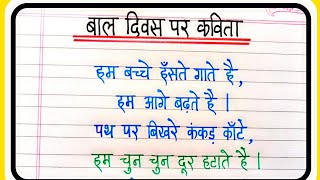 बाल दिवस पर कविता
हम बच्चे हँसते गाते है,
हम आगे बढ़ते है |
पथ पर बिखरे कंकड़ काँटे,
हम चुन चुन दूर हटाते है |